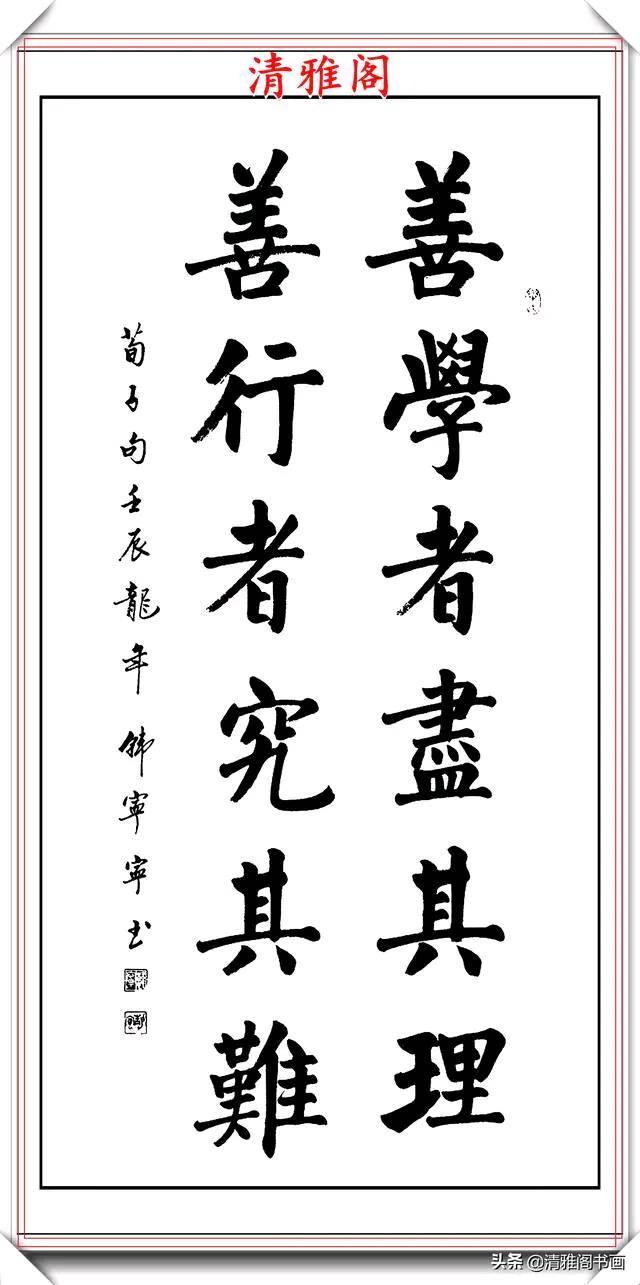 清雅阁
善學者盡其理
善行者究其難
荀子句壬辰龍年韩寧寧书
头条@清雅阁书画